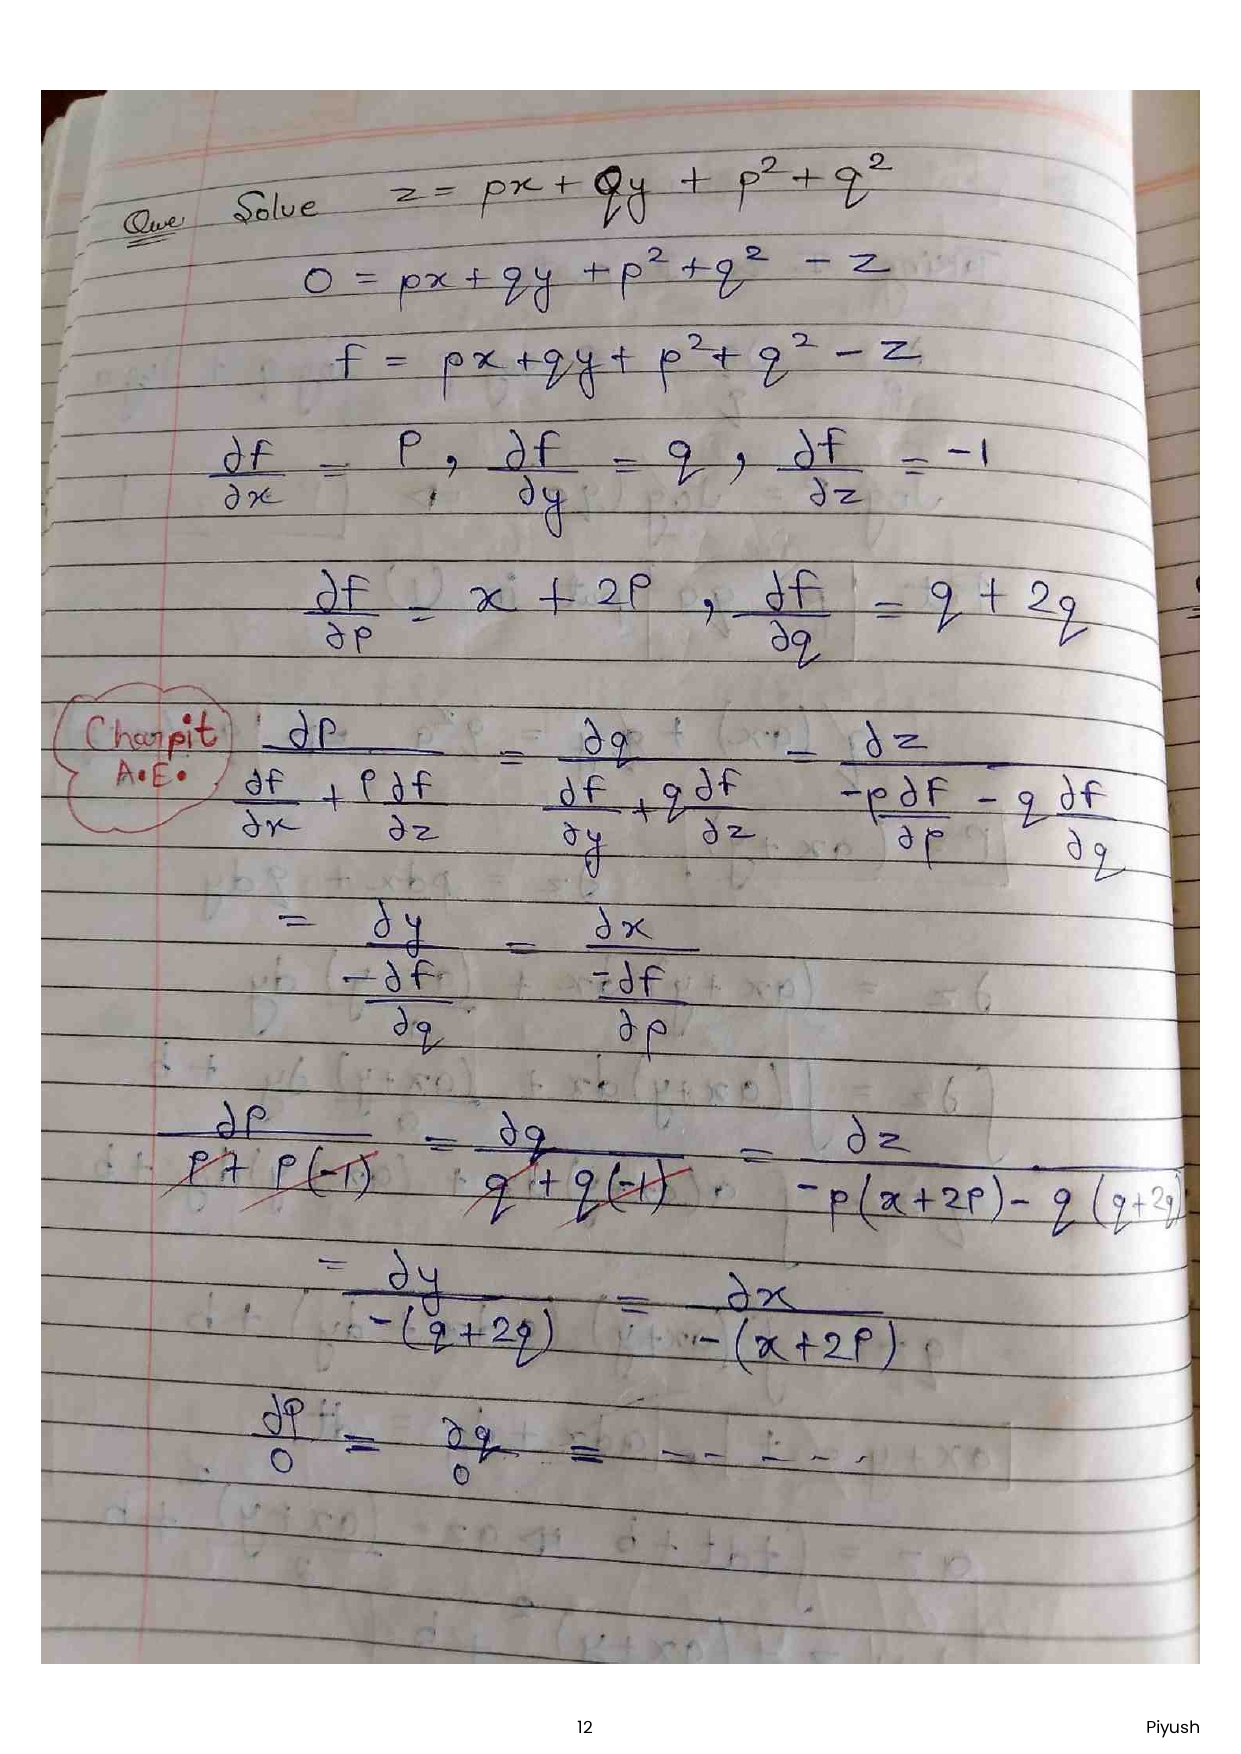 Que Solve z = px + Qy + p² + q²
0 = px + qy + p² + q² - z
f = px + qy + p² + q² - z
∂f/∂x = P, ∂f/∂y = q, ∂f/∂z = -1
∂f/∂p = x + 2P, ∂f/∂q = q + 2q
Charpit A.E. ∂P/(∂f/∂x + P ∂f/∂z) = ∂q/(∂f/∂y + q ∂f/∂z) = ∂z/(-p ∂f/∂p - q ∂f/∂q)
= ∂y/(-∂f/∂q) = ∂x/(-∂f/∂p)
∂P/(P + P(-1)) = ∂q/(q + q(-1)) = ∂z/(-p(x+2P) - q(q+2q))
= ∂y/(-(q+2q)) = ∂x/(-(x+2P))
∂P/0 = ∂q/0 = - - - - - -
12 Piyush